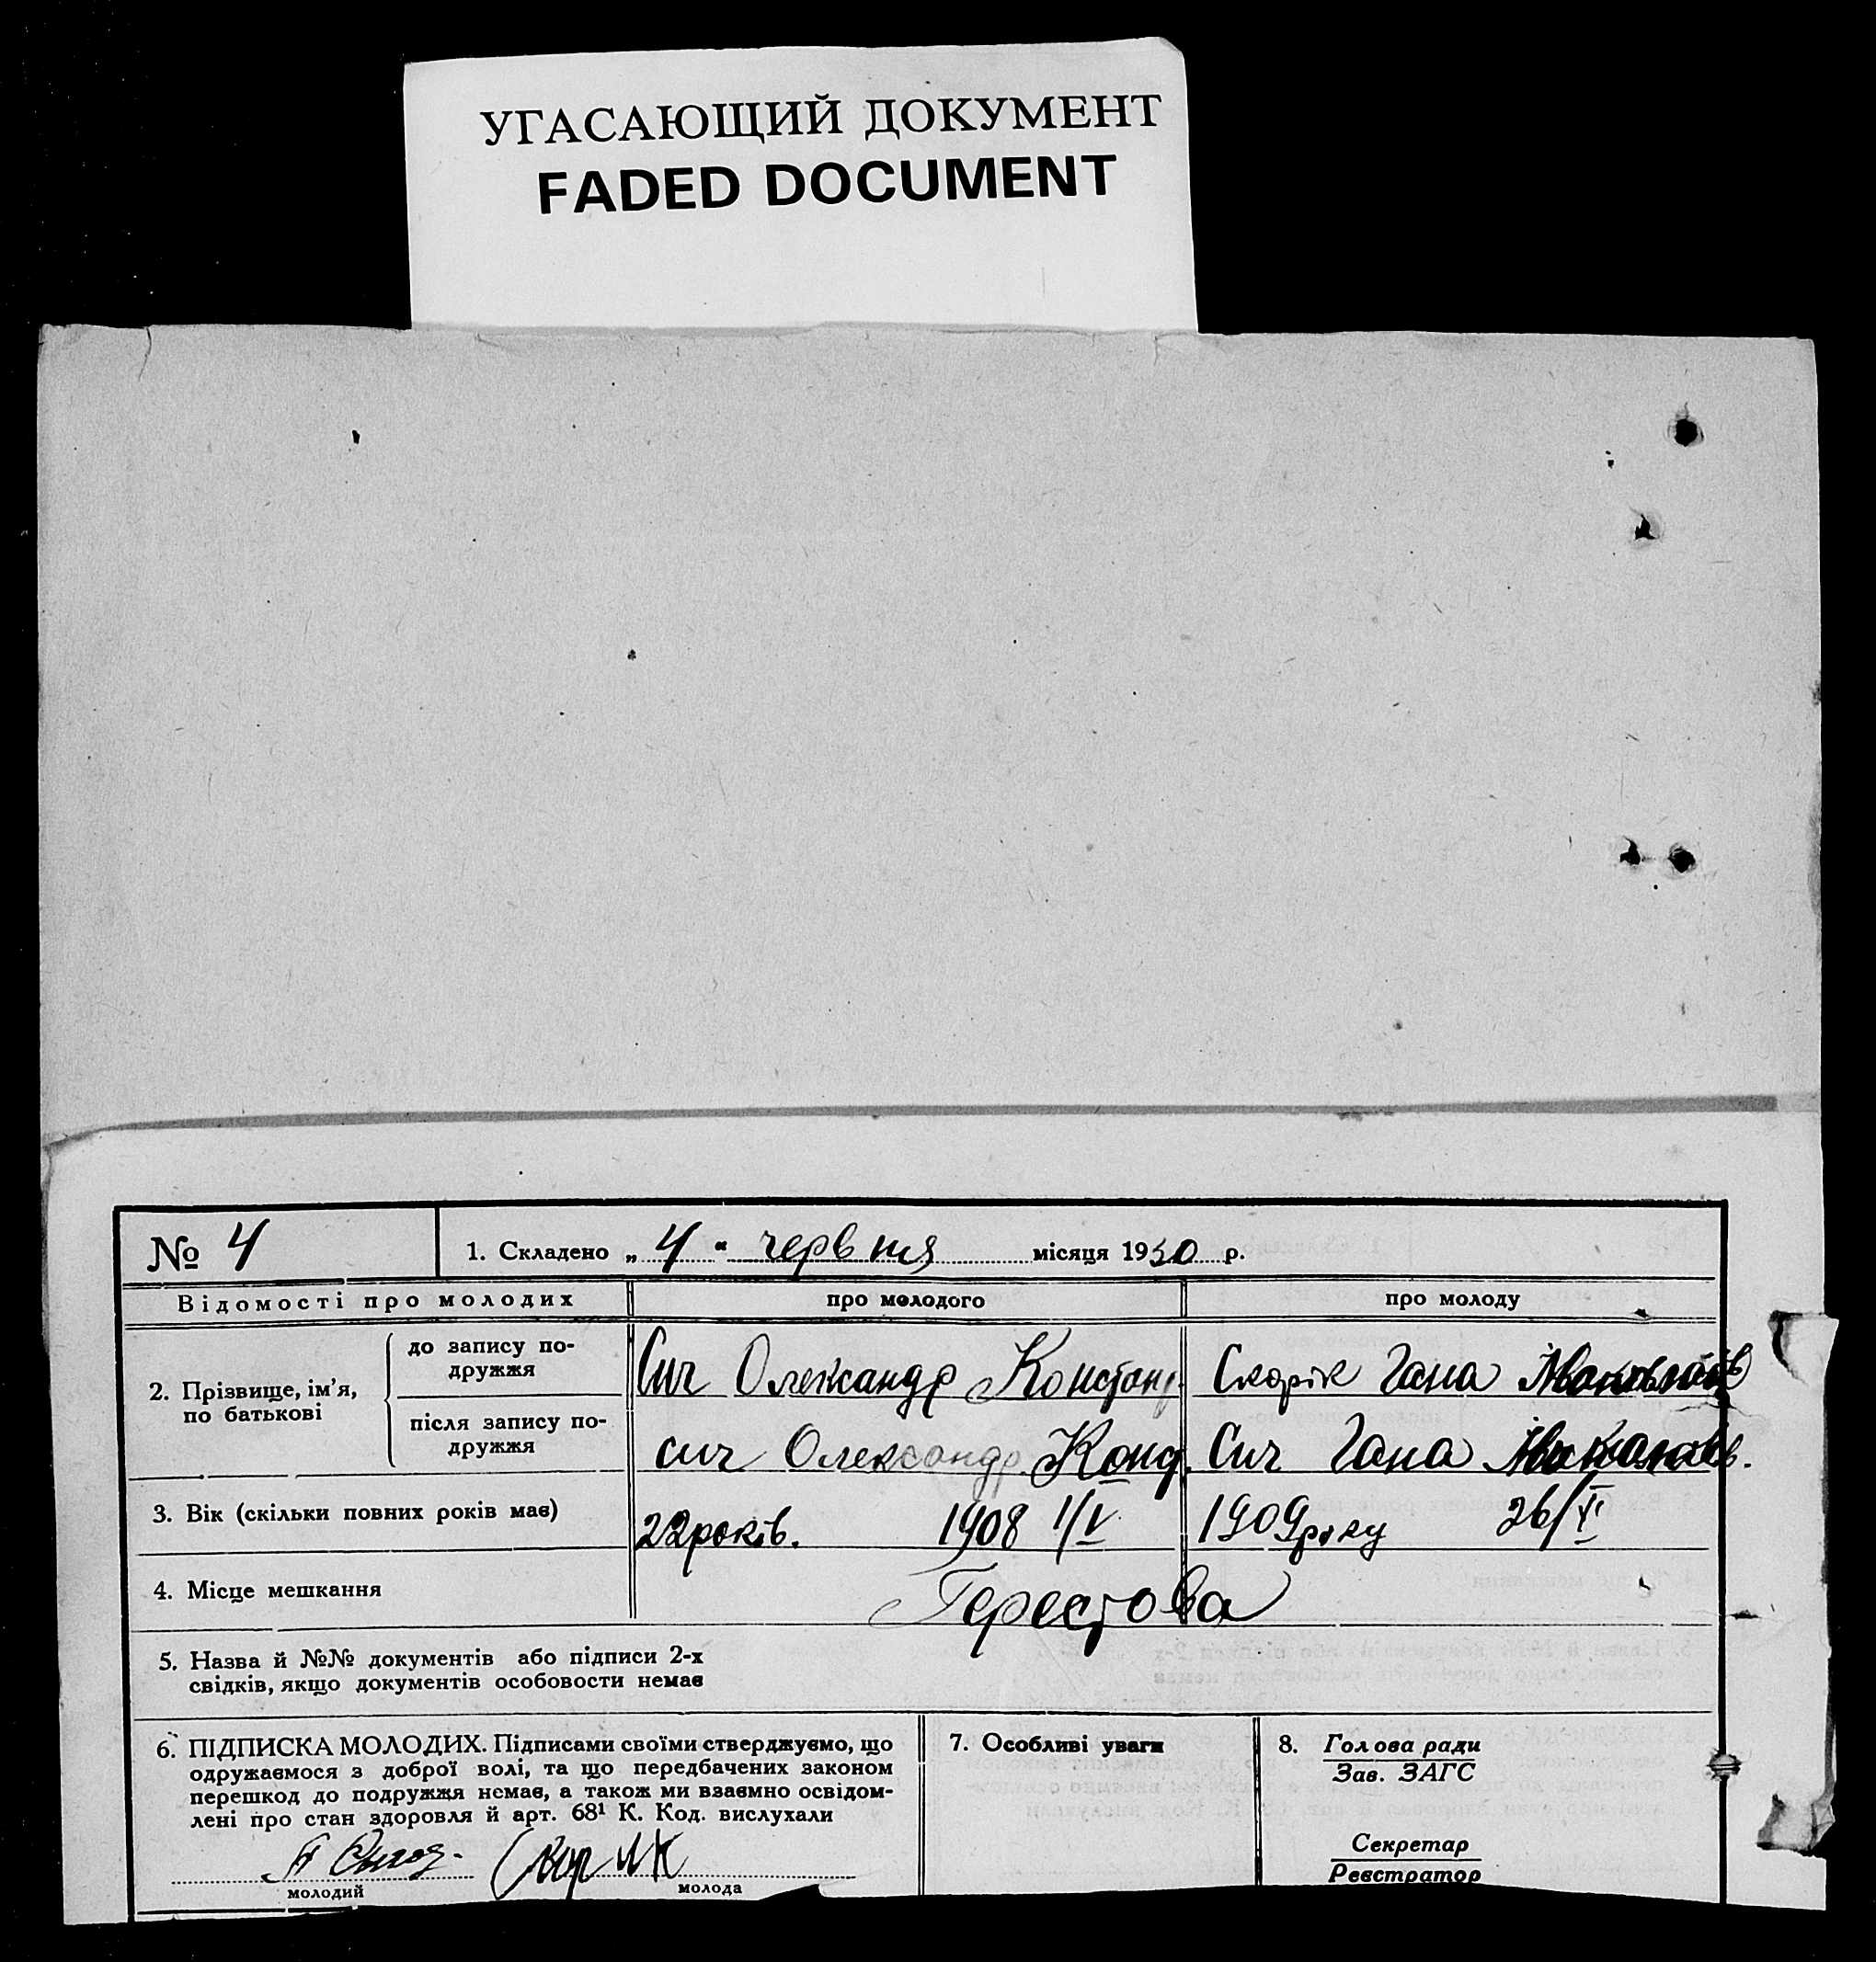 УГАСАЮЩИЙ ДОКУМЕНТ
FADED DOCUMENT
№ 4
1. Складено „ 4 “ червня місяця 1930 р.
Відомості про молодих
про молодого
про молоду
2. Прізвище, ім’я, по батькові
до запису по-
дружжя
Сич Олександр Констант
Скорік Гана
після запису по-
дружжя
сич Олександр Конд.
Сич Гана
3. Вік (скільки повних років має)
22 років. 1908 1/V
1909 року 26/
4. Місце мешкання
5. Назва й №№ документів або підписи 2-х
свідків, якщо документів особовости немає
6. ПІДПИСКА МОЛОДИХ. Підписами своїми стверджуємо, що
одружаємося з доброї волі, та що передбачених законом
перешкод до подружжя немає, а також ми взаємно освідом-
лені про стан здоровля й арт. 68¹ К. Код. вислухали
молодий
молода
7. Особливі уваги
8. Голова ради
Зав. ЗАГС
Секретар
Реєстратор